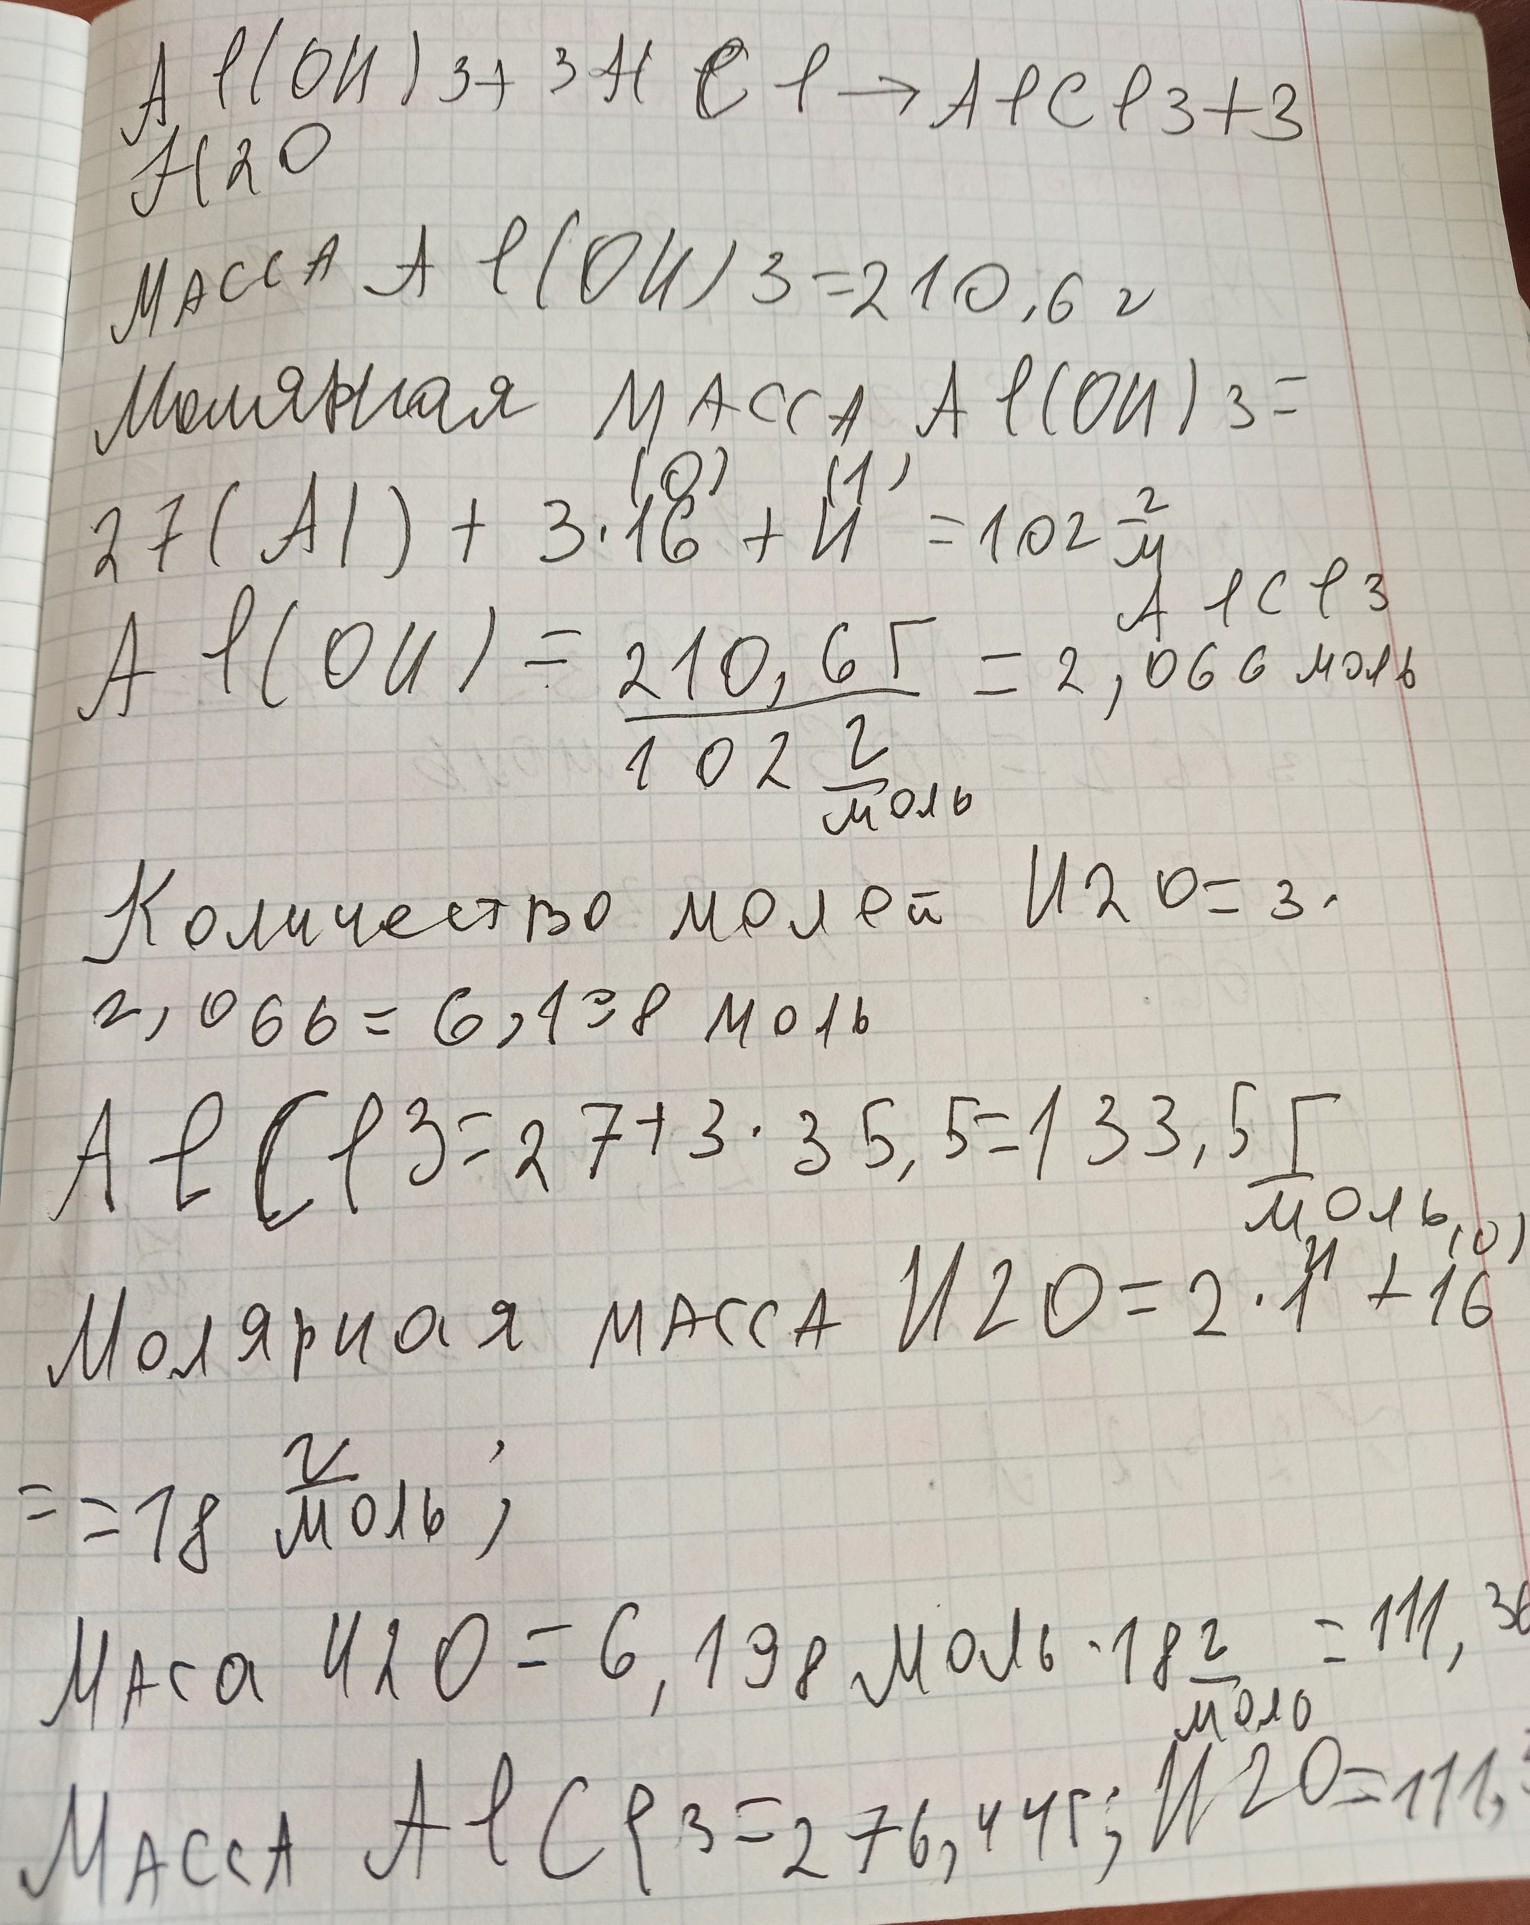 Al(OH)3+3HCl→AlCl3+3
H2O
МАССА Al(OH)3=210,6 г
Молярная МАССА Al(OH)3=
(O) (1)
27(Al)+3·16+H=102 г/м
AlCl3
Al(OH)=210,6Г/102 г/моль=2,066 моль
Количество молей H2O=3·
2,066=6,198 моль
AlCl3=27+3·35,5=133,5 Г/моль
H (O)
Молярная МАССА H2O=2·1+16
= =18 г/моль;
МАса H2O=6,198 моль·18 г/моль=111,
МАССА AlCl3=276,44г; H2O=111,